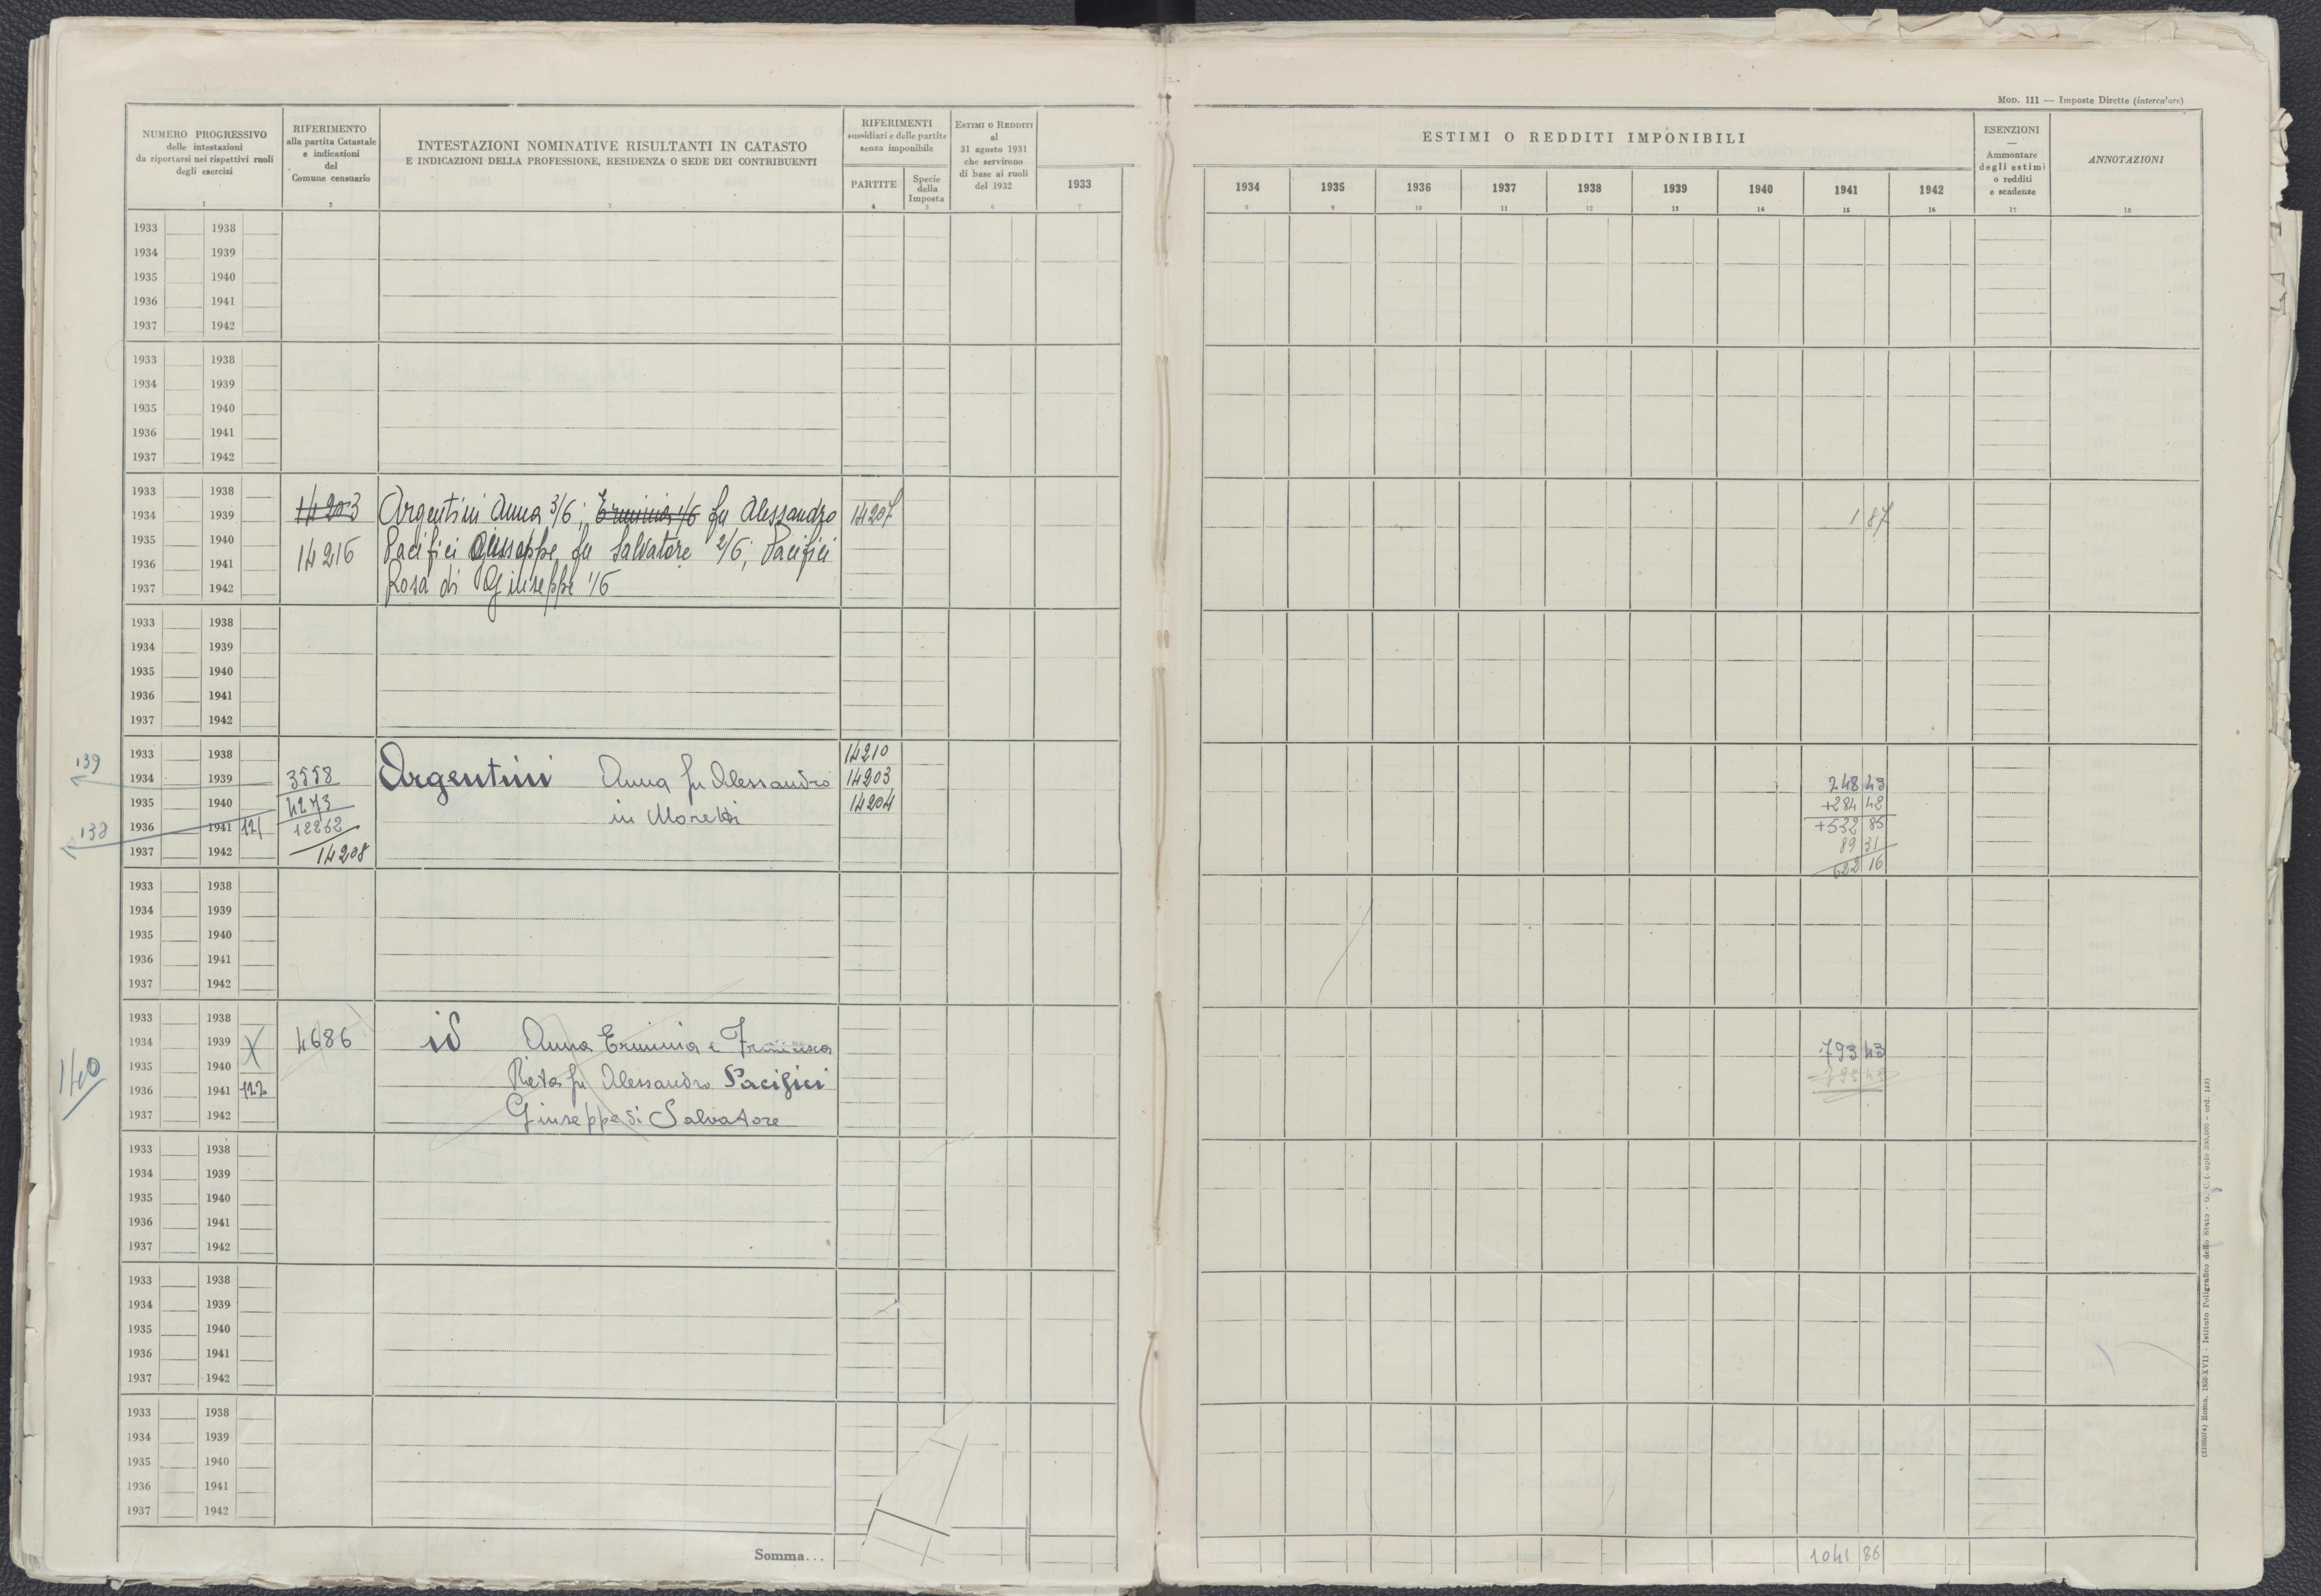 MOD. 111 — Imposte Dirette (intercalare)
NUMERO PROGRESSIVO
delle intestazioni
da riportarsi nei rispettivi ruoli
degli esercizi
1
RIFERIMENTO
alla partita Catastale
e indicazioni
del
Comune censuario
2
INTESTAZIONI NOMINATIVE RISULTANTI IN CATASTO
E INDICAZIONI DELLA PROFESSIONE, RESIDENZA O SEDE DEI CONTRIBUENTI
3
RIFERIMENTI
sussidiari e delle partite
senza imponibile
PARTITE
4
Specie
della
Imposta
5
ESTIMI O REDDITI
al
31 agosto 1931
che servirono
di base ai ruoli
del 1932
6
1933
7
ESTIMI O REDDITI IMPONIBILI
1934 1935 1936 1937 1938 1939 1940 1941 1942
8 9 10 11 12 13 14 15 16
ESENZIONI
—
Ammontare
degli estimi
o redditi
e scadenze
17
ANNOTAZIONI
18
1933 1938
1934 1939
1935 1940
1936 1941
1937 1942
1933 1938
1934 1939
1935 1940
1936 1941
1937 1942
1933 1938
1934 1939 14203 Argentini Anna 3/6; Erminia 1/6 fu Alessandro 14207 1 87
1935 1940 14216 Pacifici Giuseppe fu Salvatore 2/6; Pacifici
1936 1941
1937 1942 Rosa di Giuseppe 1/6
1933 1938
1934 1939
1935 1940
1936 1941
1937 1942
1933 1938 14210
139 1934 1939 3558 Argentini Anna fu Alessandro 14203 248 43
1935 1940 4273 in Moretti 14204 +284 42
138 1936 1941 121 12262 +532 85
1937 1942 14208 89 31
622 16
1933 1938
1934 1939
1935 1940
1936 1941
1937 1942
1933 1938
1934 1939 X 4686 id Anna Erminia e Francesca 793 43
1935 1940
140 1936 1941 122 fu Alessandro Pacifici 793 43
1937 1942 Giuseppe di Salvatore
1933 1938
1934 1939
1935 1940
1936 1941
1937 1942
1933 1938
1934 1939
1935 1940
1936 1941
1937 1942
1933 1938
1934 1939
1935 1940
1936 1941
1937 1942
Somma... 1041 86
Roma, 1938-XVII - Istituto Poligrafico dello Stato - G. C.